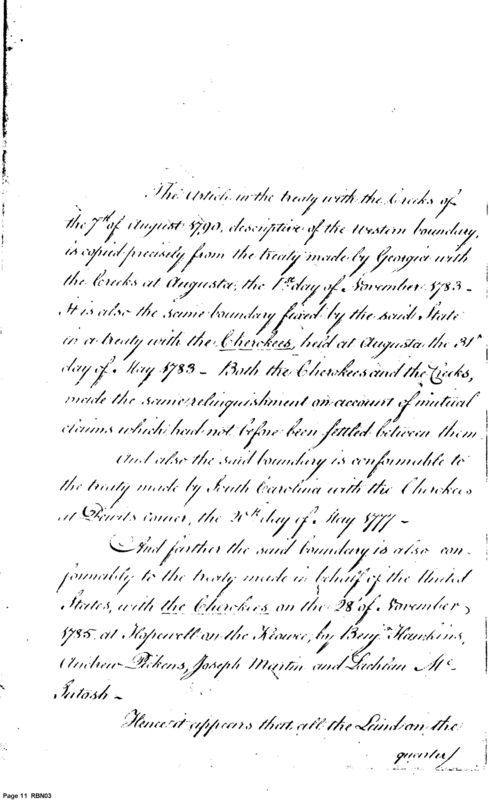 The Article in the treaty with the Creeks of
the 7th of August 1790, descriptive of the western boundary,
is copied precisely from the treaty made by Georgia with
the Creeks at Augusta, the 1st day of November 1783 -
It is also the same boundary fixed by the said State
in a treaty with the Cherokees, held at Augusta the 31st
day of May 1783 - Both the Cherokees and the Creeks,
made the same relinquishment on account of mutual
claims which had not before been settled between them
And also the said boundary is conformable to
the treaty made by South Carolina with the Cherokees
at Dewits corner, the 20th day of May 1777 -
And farther the said boundary is also con-
formably to the treaty made in behalf of the United
States, with the Cherokees on the 28th of November
1785 at Hopewell on the Keowee, by Benjn Hawkins,
Andrew Pickens, Joseph Martin and Lachlan Mc
Intosh -
Hence it appears that all the Land on the
quarter/
Page 11 RBN03